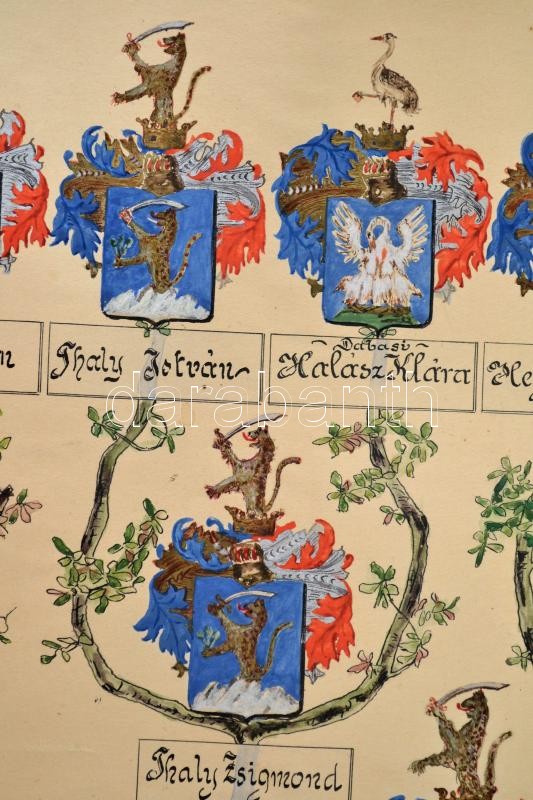 Thaly István
Dabasi
Halász Klára
He
darabanth
Thaly Zsigmond